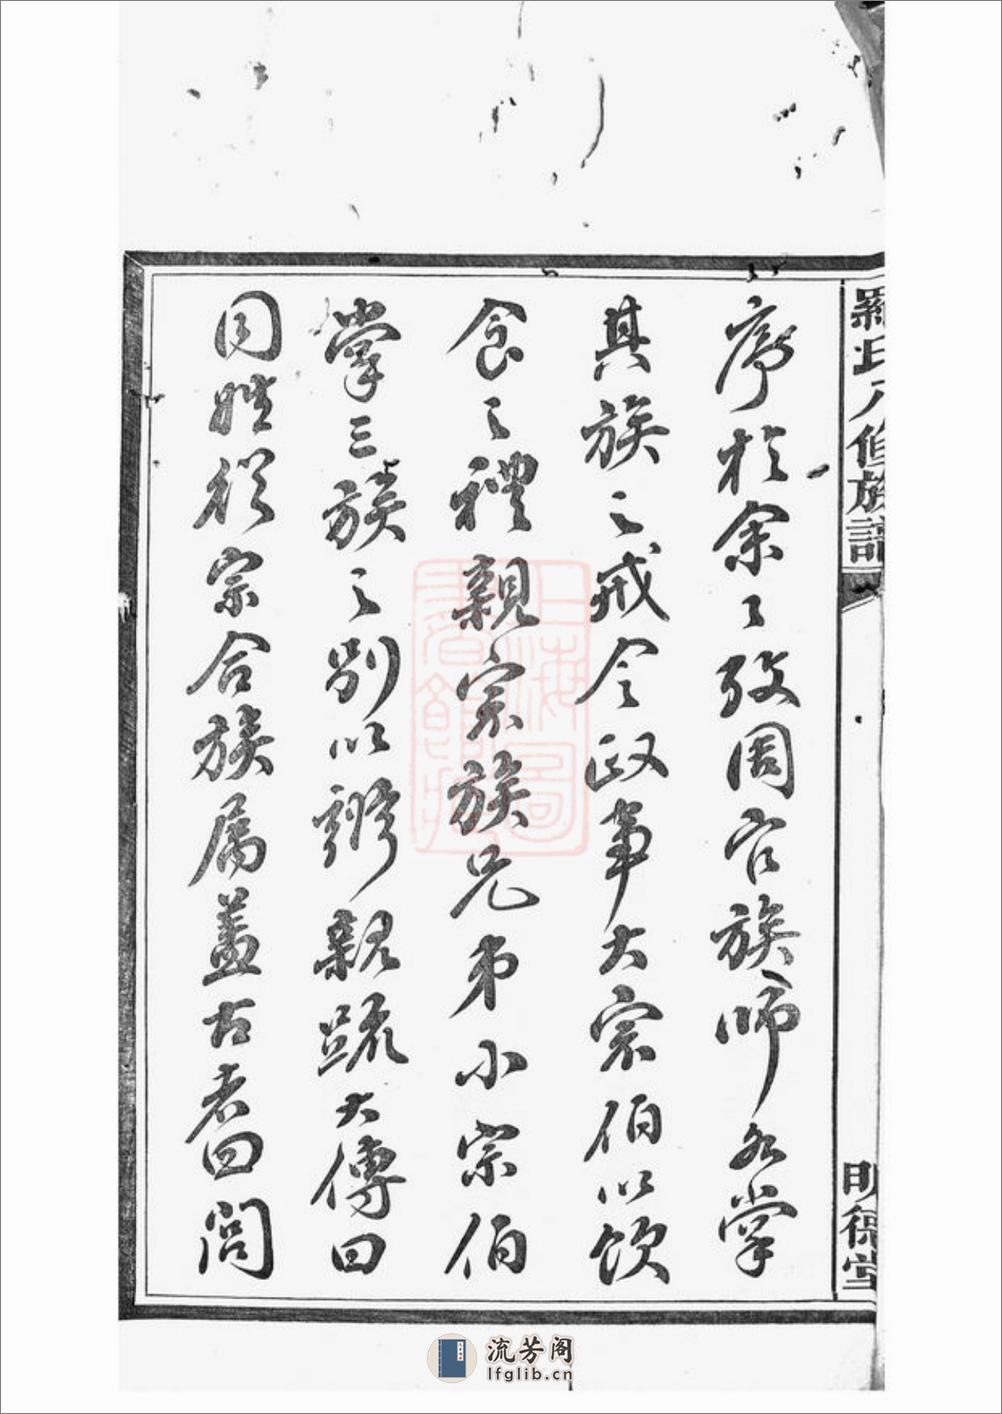 羅氏八修族譜
明德堂
序於余余攷周官族師各掌
其族之戒令政事大宗伯以飲
食之禮親宗族兄弟小宗伯
掌三族之別以辨親疏大傳曰
同姓從宗合族屬蓋古者四閭
上海圖書館藏
流芳阁
lfglib.cn